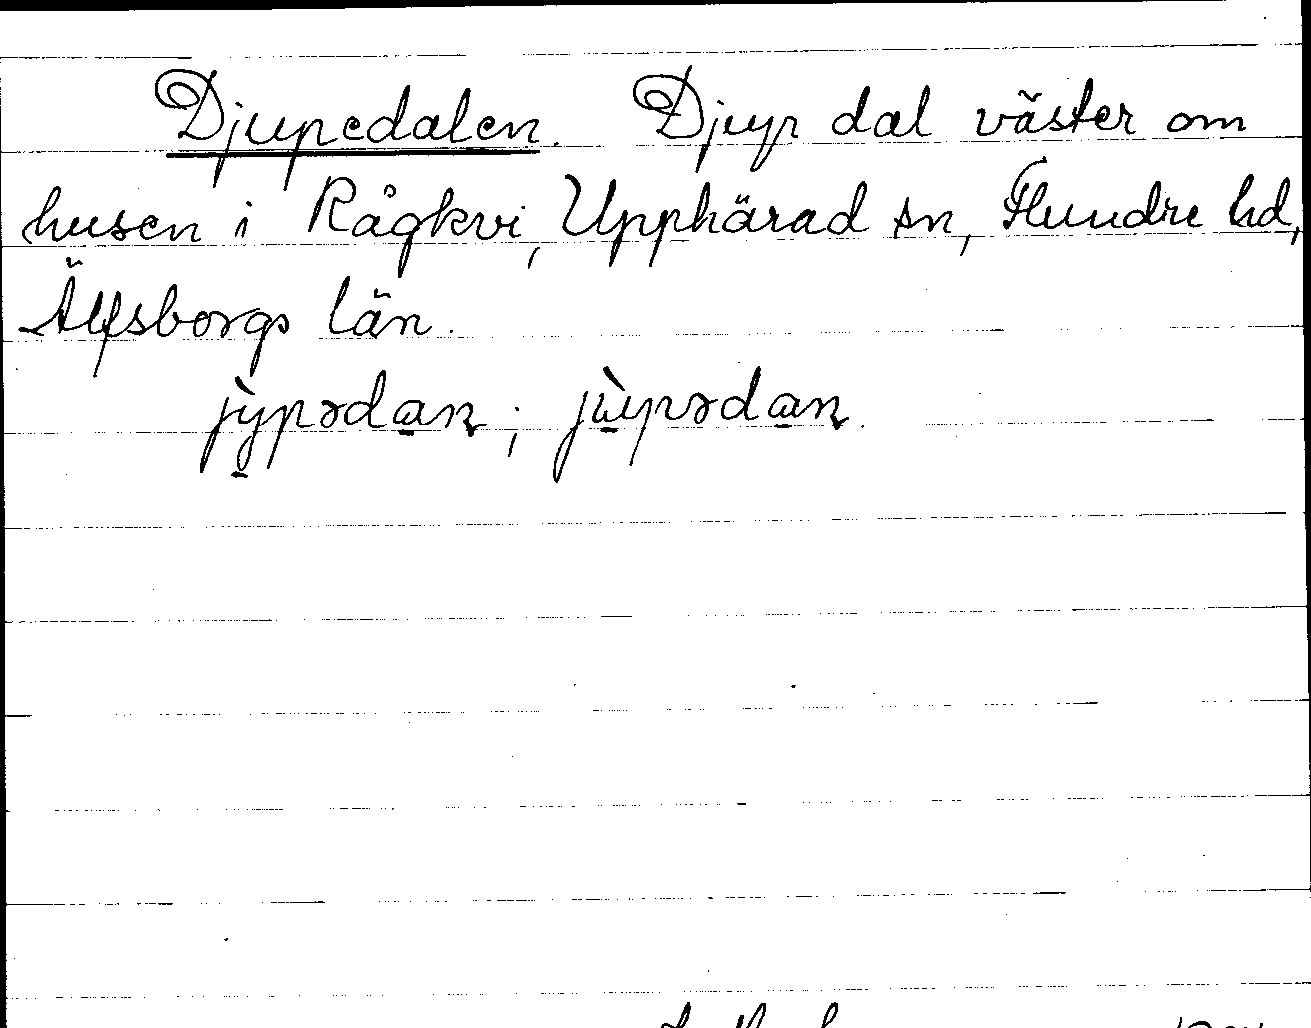 Djupedalen. Djup dal väster om
husen i Rågkvi, Upphärad sn, Flundre hd,
Älfsborgs län.
jỳ̠pəda̠n; jù̠pəda̠n.